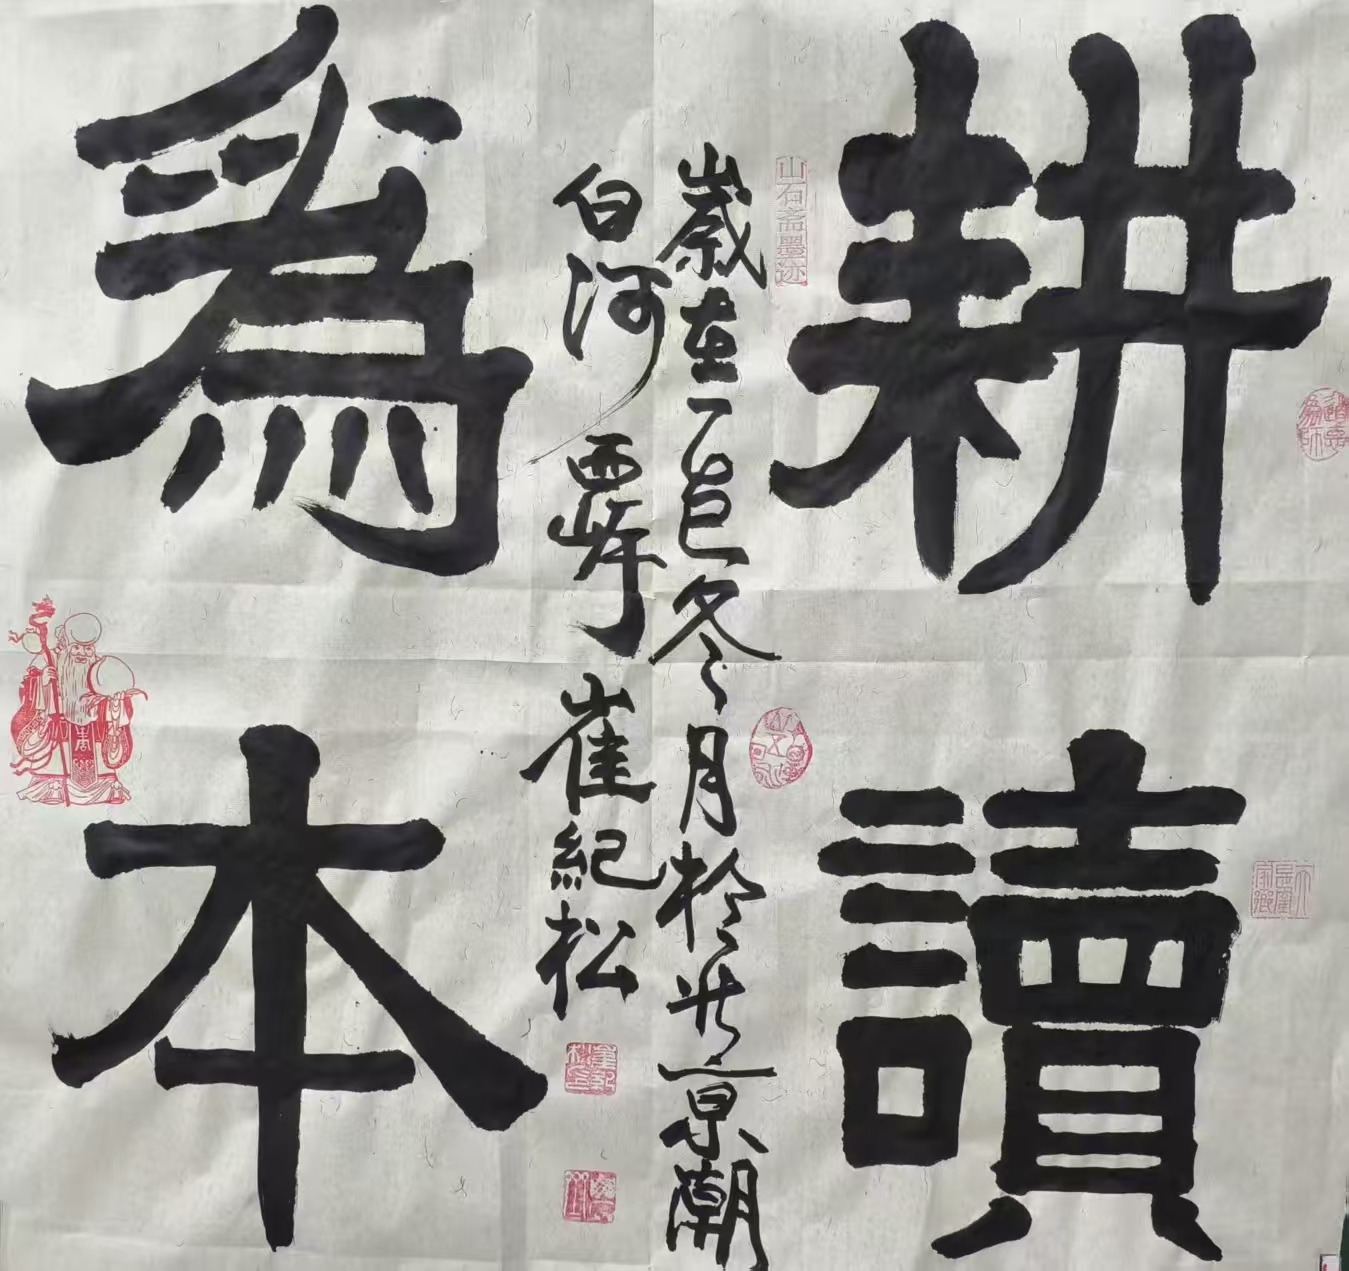 耕讀
為本
歲在乙巳冬月於北京潮
白河西岸崔紀松
山石斋墨迹